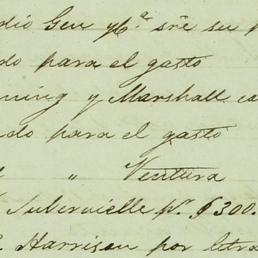 dio Gen y Ca sñe su
do para el gasto
ning y Marshall ca
do para el gasto
" " Ventura
Subervielle pr. $300.
Harrison por letra